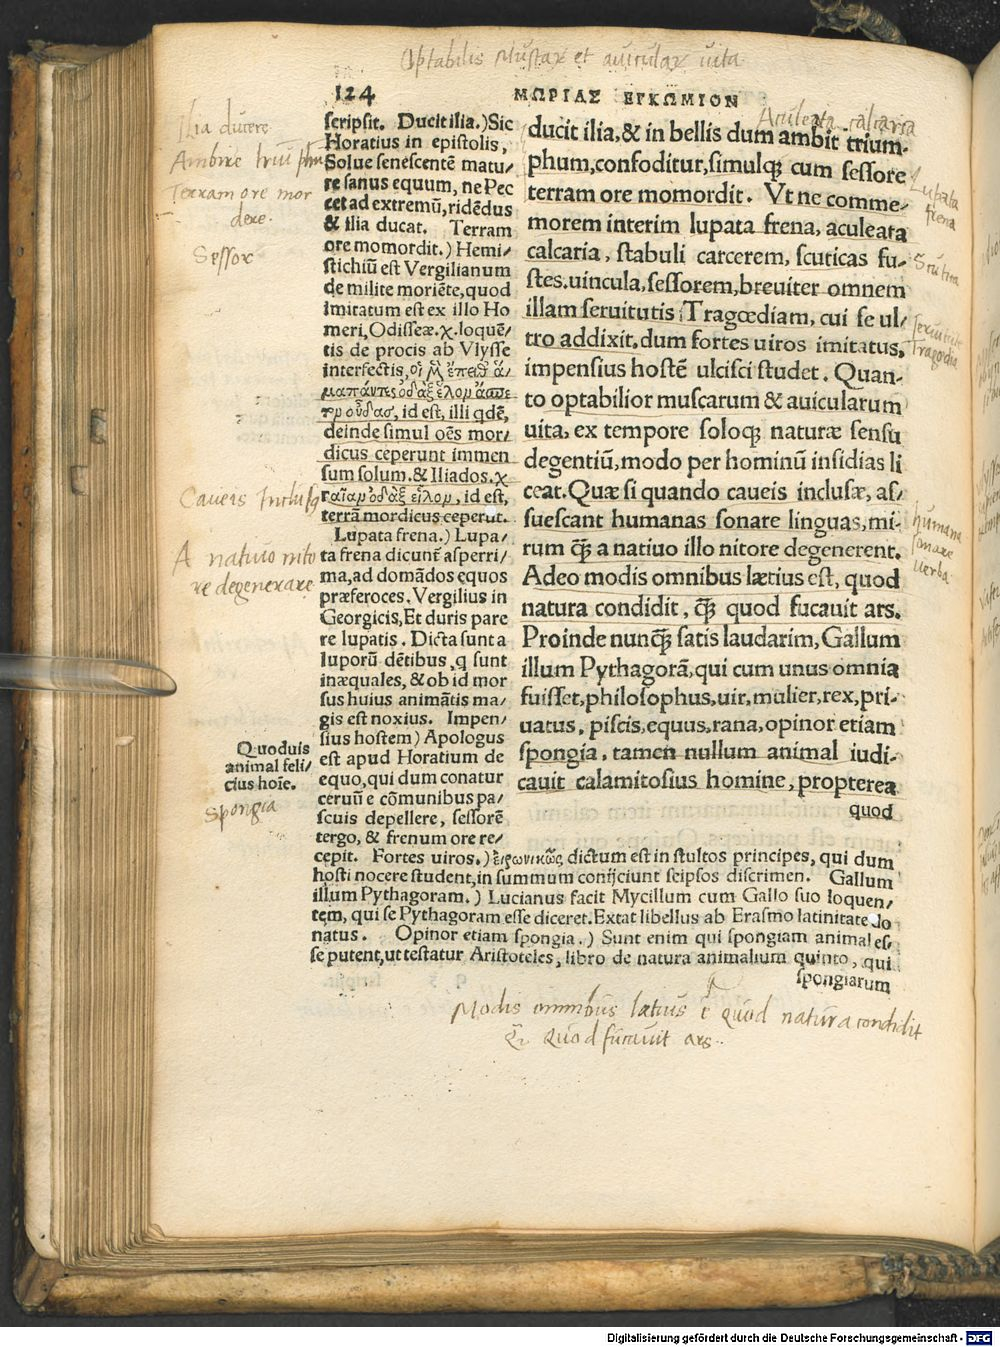 Optabilis Muscar et auicular uita
124
ΜΩΡΙΑΣ ΕΓΚΩΜΙΟΝ
Aculeata calcaria
Ilia ducere
Ambire triū phū
Terram ore mor
dere.
Sessor
Caueis Inclusę
A natiuo nito
re degenerare
Quoduis
animal feli/
cius hoīe.
Spongia
scripsit. Ducit ilia.) Sic
Horatius in epistolis,
Solue senescentē matu/
re sanus equum, ne Pec
cet ad extremū, ridēdus
& ilia ducat. Terram
ore momordit.) Hemi/
stichiū est Vergilianum
de milite moriēte, quod
imitatum est ex illo Ho
meri, Odisseæ. χ. loquē/
tis de procis ab Vlysse
interfectis,
id est, illi qdē,
deinde simul oēs mor/
dicus ceperunt immen
sum solum. & Iliados. χ
id est,
terrā mordicus ceperūt.
Lupata frena.) Lupa/
ta frena dicunt asperri/
ma, ad domādos equos
præferoces. Vergilius in
Georgicis, Et duris pare
re lupatis. Dicta sunt a
luporū dētibus, q sunt
inæquales, & ob id mor
sus huius animātis ma/
gis est noxius. Impen/
sius hostem) Apologus
est apud Horatium de
equo, qui dum conatur
ceruū e cōmunibus pa/
scuis depellere, sessorē
tergo, & frenum ore re/
cepit. Fortes uiros.) εἰρωνικῶς dictum est in stultos principes, qui dum
hosti nocere student, in summum conijciunt seipsos discrimen. Gallum
illum Pythagoram.) Lucianus facit Mycillum cum Gallo suo loquen/
tem, qui se Pythagoram esse diceret. Extat libellus ab Erasmo latinitate do
natus. Opinor etiam spongia.) Sunt enim qui spongiam animal es/
se putent, ut testatur Aristoteles, libro de natura animalium quinto, qui
spongiarum
ducit ilia, & in bellis dum ambit trium-
phum, confoditur, simulq; cum sessore
terram ore momordit. Vt ne comme/
morem interim lupata frena, aculeata
calcaria, stabuli carcerem, scuticas fu-
stes. uincula, sessorem, breuiter omnem
illam seruitutis Tragœdiam, cui se ul/
tro addixit, dum fortes uiros imitatus,
impensius hostē ulcisci studet. Quan-
to optabilior muscarum & auicularum
uita, ex tempore soloq; naturæ sensu
degentiū, modo per hominū insidias li
ceat. Quæ si quando caueis inclusæ, as/
suescant humanas sonare linguas, mi-
rum q̄; a natiuo illo nitore degenerent.
Adeo modis omnibus lætius est, quod
natura condidit, q̄; quod fucauit ars.
Proinde nunq̄; satis laudarim, Gallum
illum Pythagorā, qui cum unus omnia
fuisset, philosophus, uir, mulier, rex, pri-
uatus, piscis, equus, rana, opinor etiam
spongia, tamen nullum animal iudi-
cauit calamitosius homine, propterea
quod
Lupata
frena
Scutica
Tragœdia
humana
sonare
uerba
Modis omnibus lætius ē quod natura condidit
q̄ quod fucauit ars.
Digitalisierung gefördert durch die Deutsche Forschungsgemeinschaft - DFG